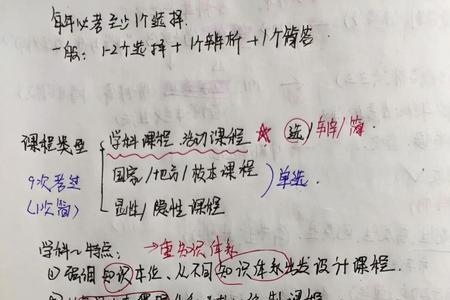 每年必考至少1个选择.
一般: 1-2个选择+1个辨析+1个简答.
学科课程、活动课程 ☆ 选/辨/简.
课程类型 国家/地方/校本课程 单选.
9次考过
(1次简) 显性/隐性课程
学科~特点: →重知识体系
①强调知识本位、从不同知识体系出发设计课程.